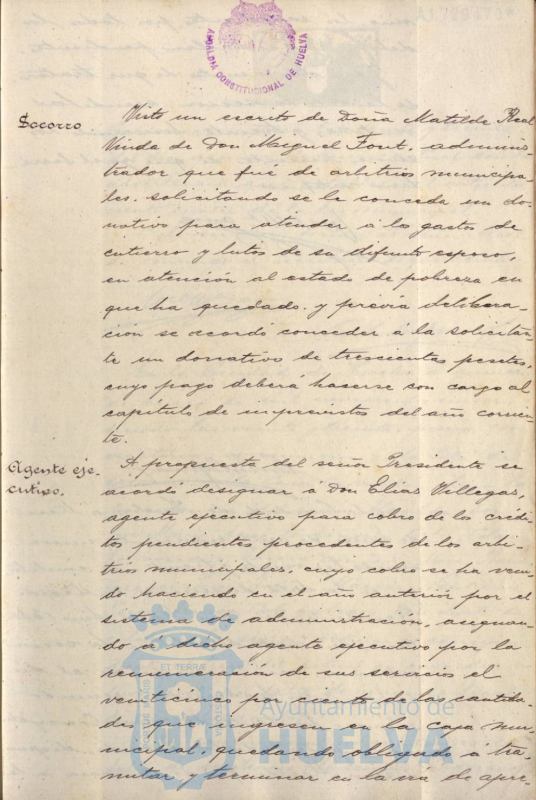 ALCALDIA CONSTITUCIONAL DE HUELVA
Socorro
Visto un escrito de Doña Matilde Real
Viuda de Don Miguel Font, adminis-
trador que fué de arbitrios municipa-
les, solicitando se le conceda un do-
nativo para atender á lo gastos de
entierro y lutos de su difunto esposo,
en atención al estado de pobreza en
que ha quedado. y previa delibera-
ción se acordó conceder á la solicitan-
te un donativo de trescientas pesetas,
cuyo pago deberá hacerse con cargo al
capítulo de imprevistos del año corrien-
te.
Agente eje-
cutivo.
A propuesta del señor Presidente se
acordó designar á Don Elías Villegas,
agente ejecutivo para cobro de los crédi-
tos pendientes procedentes de los arbi-
trios municipales, cuyo cobro se ha veni-
do haciendo en el año anterior por el
sistema de administración, asignan-
do á dicho agente ejecutivo por la
remuneración de sus servicios el
veinticinco por ciento de las cantida-
des que ingresen en la caja mu-
nicipal, quedando obligado á tra-
mitar y terminar en la vía de apre-
Ayuntamiento de
HUELVA